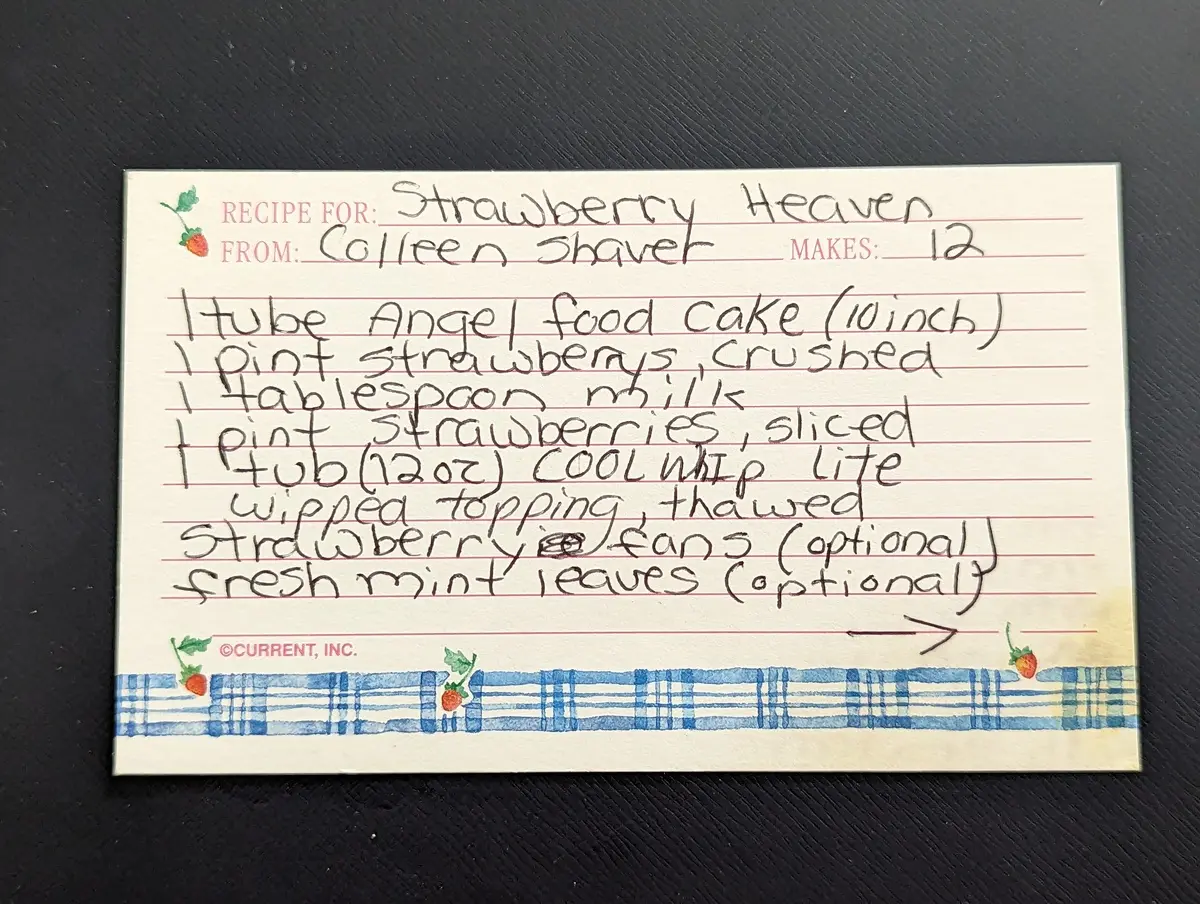 RECIPE FOR: Strawberry Heaven
FROM: Colleen Shaver MAKES: 12
1 tube Angel food cake (10 inch)
1 pint strawberrys, crushed
1 tablespoon milk
1 pint strawberries, sliced
1 tub (12 oz) COOL WHIP Lite
wipped topping, thawed
Strawberry fans (optional)
fresh mint leaves (optional)
→
©CURRENT, INC.